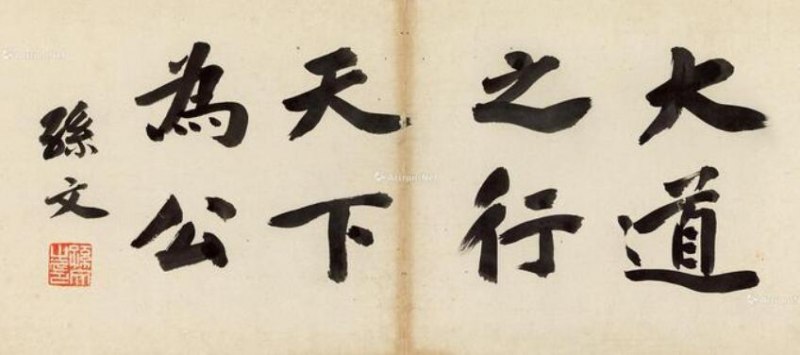 大道
之行
天下
為公
孫文
孫文之印
Artron.Net